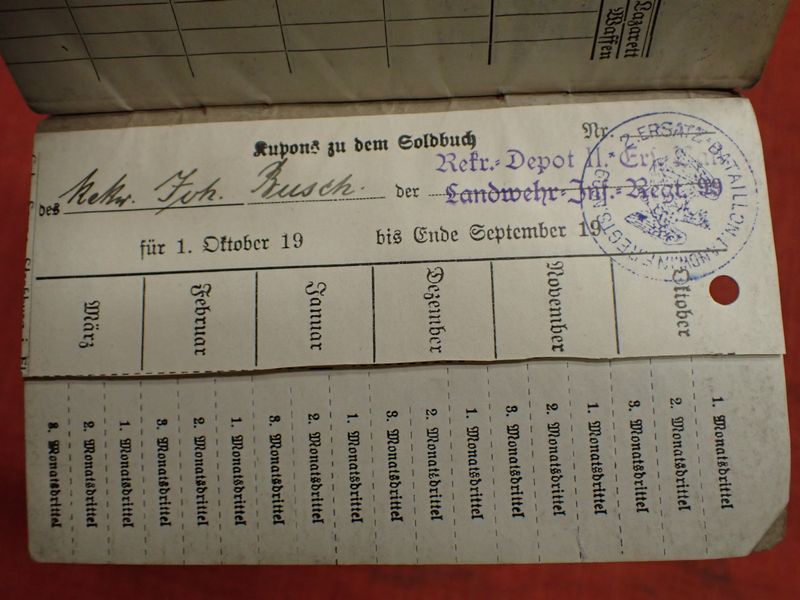 Lazarett
Waffen
Kupons zu dem Soldbuch
Nr.
Rekr.-Depot II. Ers.
des Rekr. Joh. Busch. der Landwehr-Inf.-Regt. 99
2. ERSATZ-BATAILLON
für 1. Oktober 19 bis Ende September 19
März Februar Januar Dezember November Oktober
3. Monatsdrittel 2. Monatsdrittel 1. Monatsdrittel 3. Monatsdrittel 2. Monatsdrittel 1. Monatsdrittel 3. Monatsdrittel 2. Monatsdrittel 1. Monatsdrittel 3. Monatsdrittel 2. Monatsdrittel 1. Monatsdrittel 3. Monatsdrittel 2. Monatsdrittel 1. Monatsdrittel 3. Monatsdrittel 2. Monatsdrittel 1. Monatsdrittel